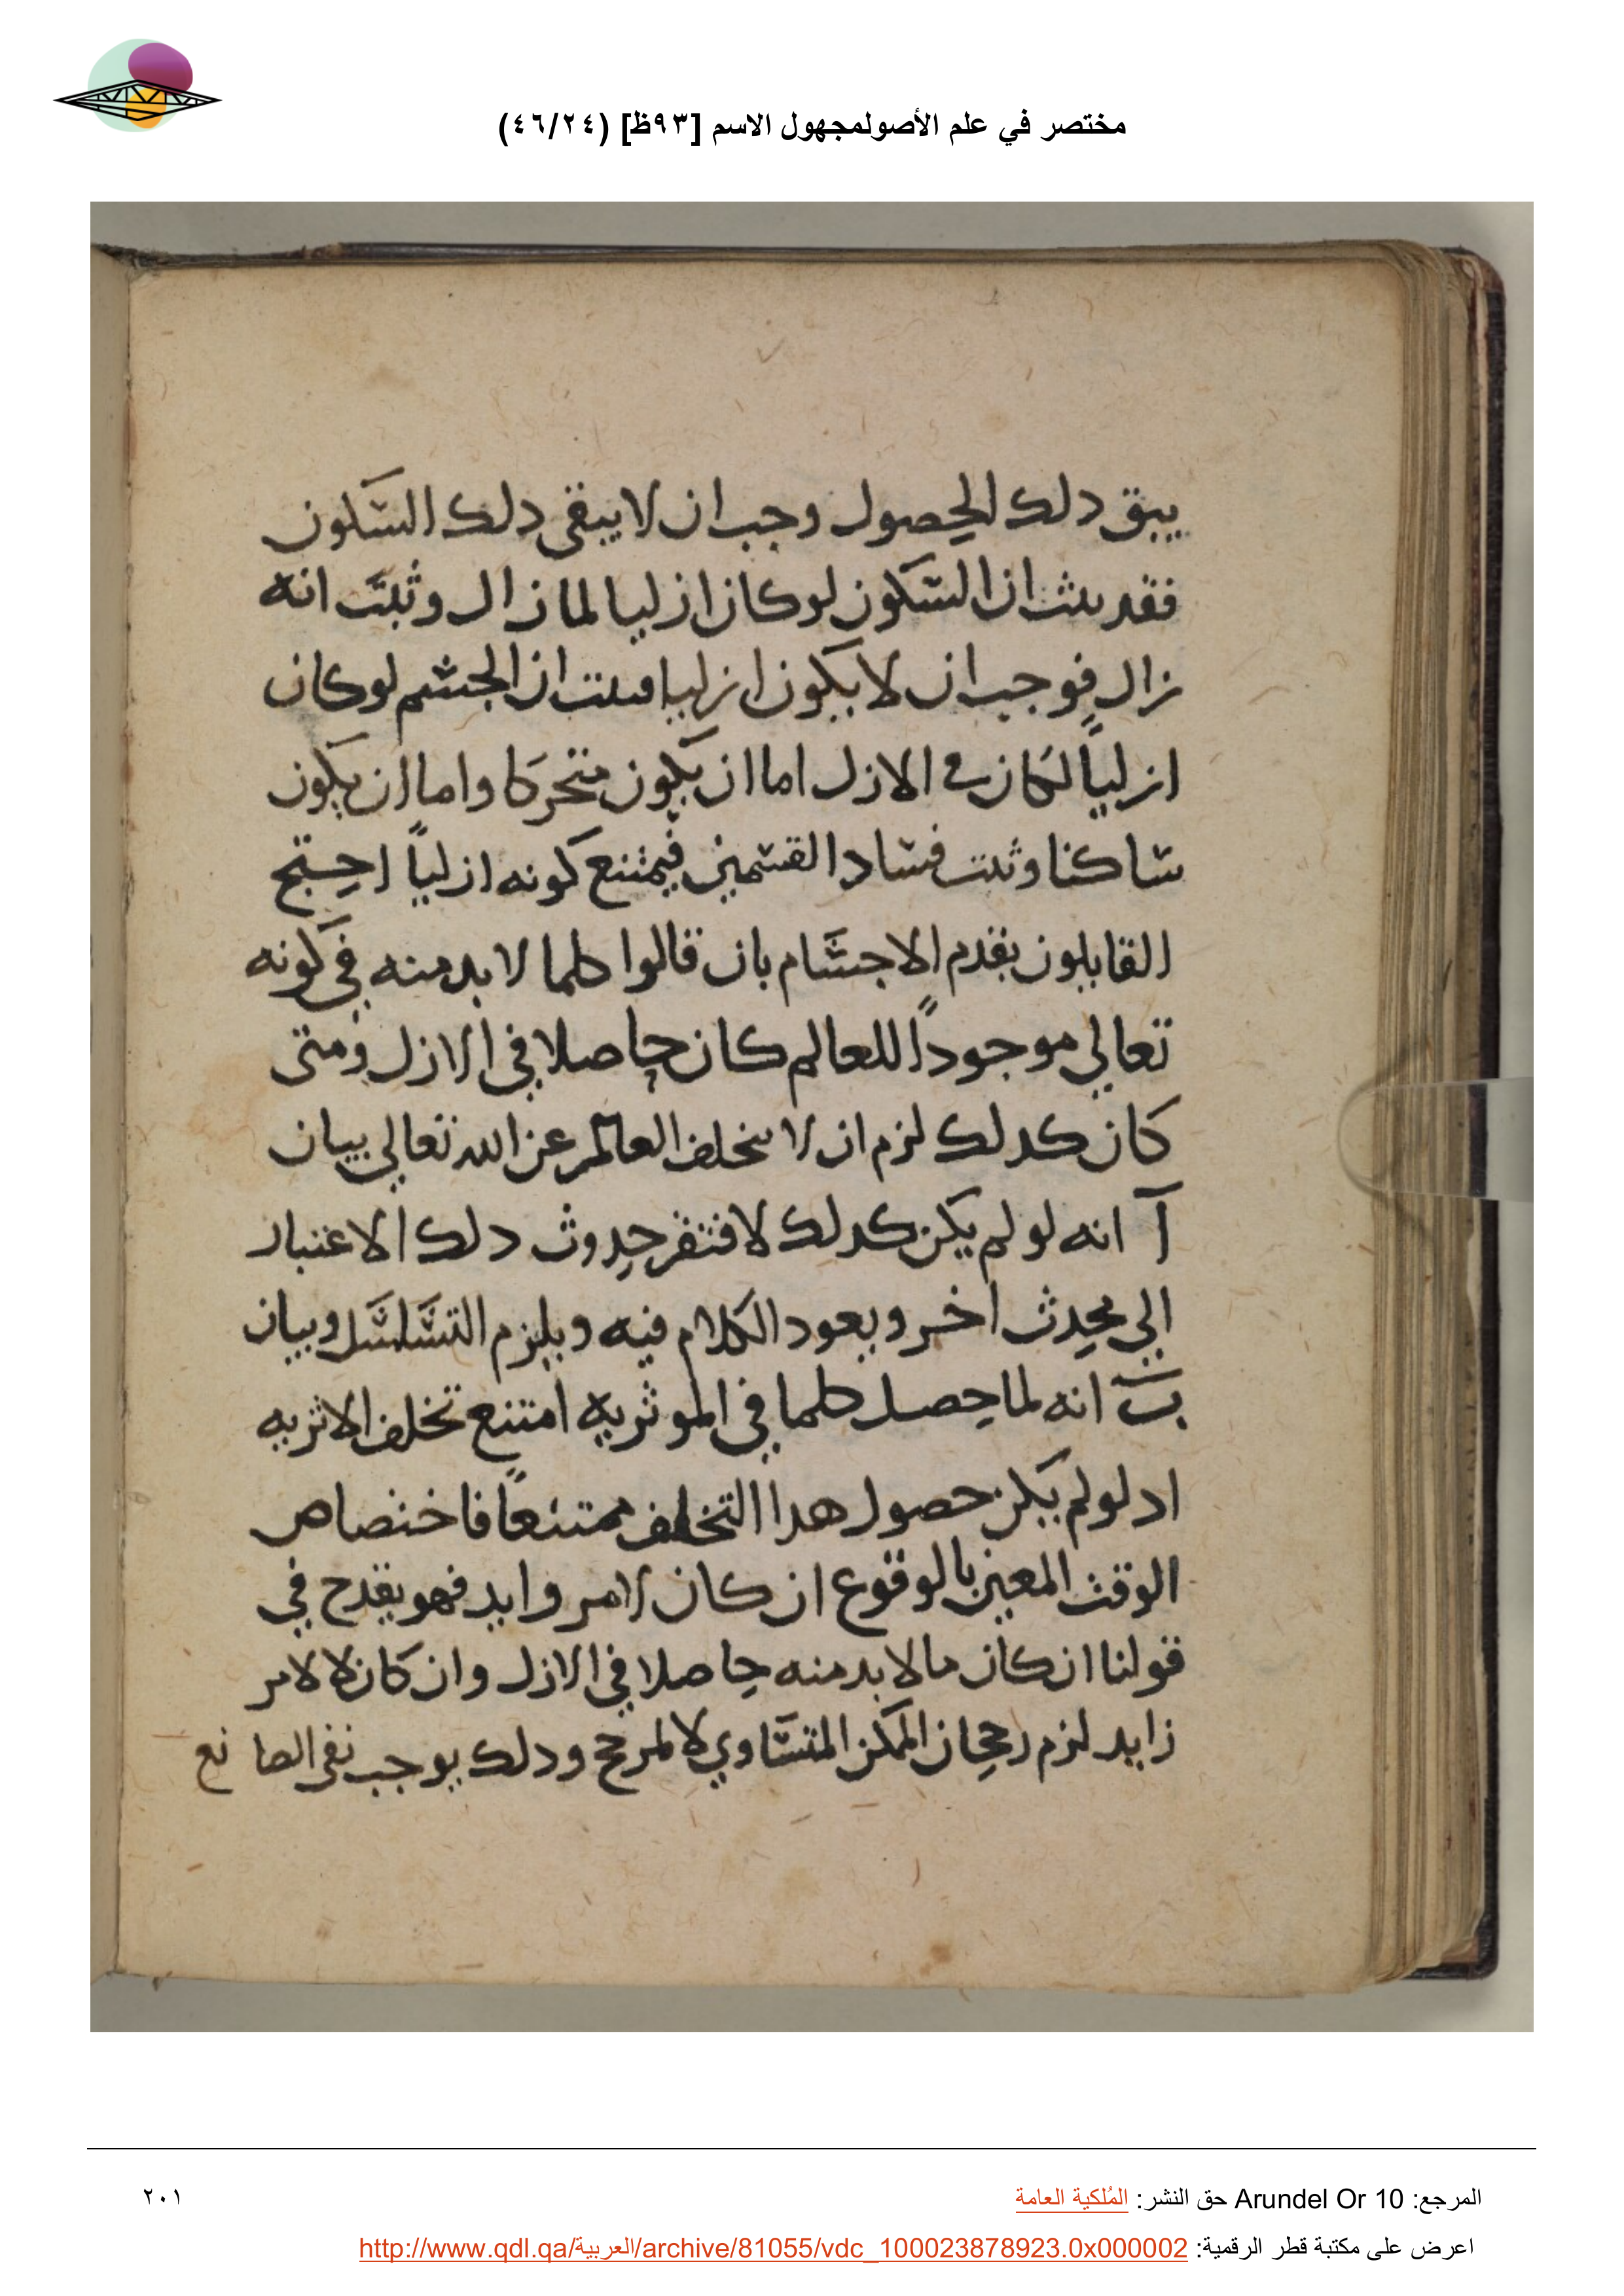 مختصر في علم الأصولمجهول الاسم [٩٣ظ] (٤٦/٢٤)
يبق دلك الحصول وجب ان لا يبقى دلك السكون
فقد ثبت ان السكون لو كان ازليا لما زال وثبت انه
زال فوجب ان لا يكون ازليا فثبت ان الجسم لو كان
ازلياً لكان في الازل اما ان يكون متحركا واما ان يكون
ساكنا وثبت فساد القسمين فيمتنع كونه ازلياً احتج
القايلون بقدم الاجسام بان قالوا كلما لا بد منه في كونه
تعالي موجوداً للعالم كان حاصلا في الازل ومتى
كان كدلك لزم ان لا يتخلف العالم عن الله تعالي بيان
آ انه لو لم يكن كدلك لافتقر حدوث دلك الاعتبار
الي محدث اخر ويعود الكلام فيه ويلزم التسلسل وبيان
ب انه لما حصل كلما في الموثرية امتنع تخلف الاثريه
اد لو لم يكن حصول هدا التخلف ممتنعاً فاختصاص
الوقت المعين بالوقوع ان كان لامر وايد فهو يقدح في
قولنا ان كان مالا بد منه حاصلا في الازل وان كان لا لامر
زايد لزم رجحان الممكن المتساوي لا لمرجح ودلك يوجب نفي الصانع
المرجع: Arundel Or 10 حق النشر: المُلكية العامة
٢٠١
اعرض على مكتبة قطر الرقمية: http://www.qdl.qa/العربية/archive/81055/vdc_100023878923.0x000002